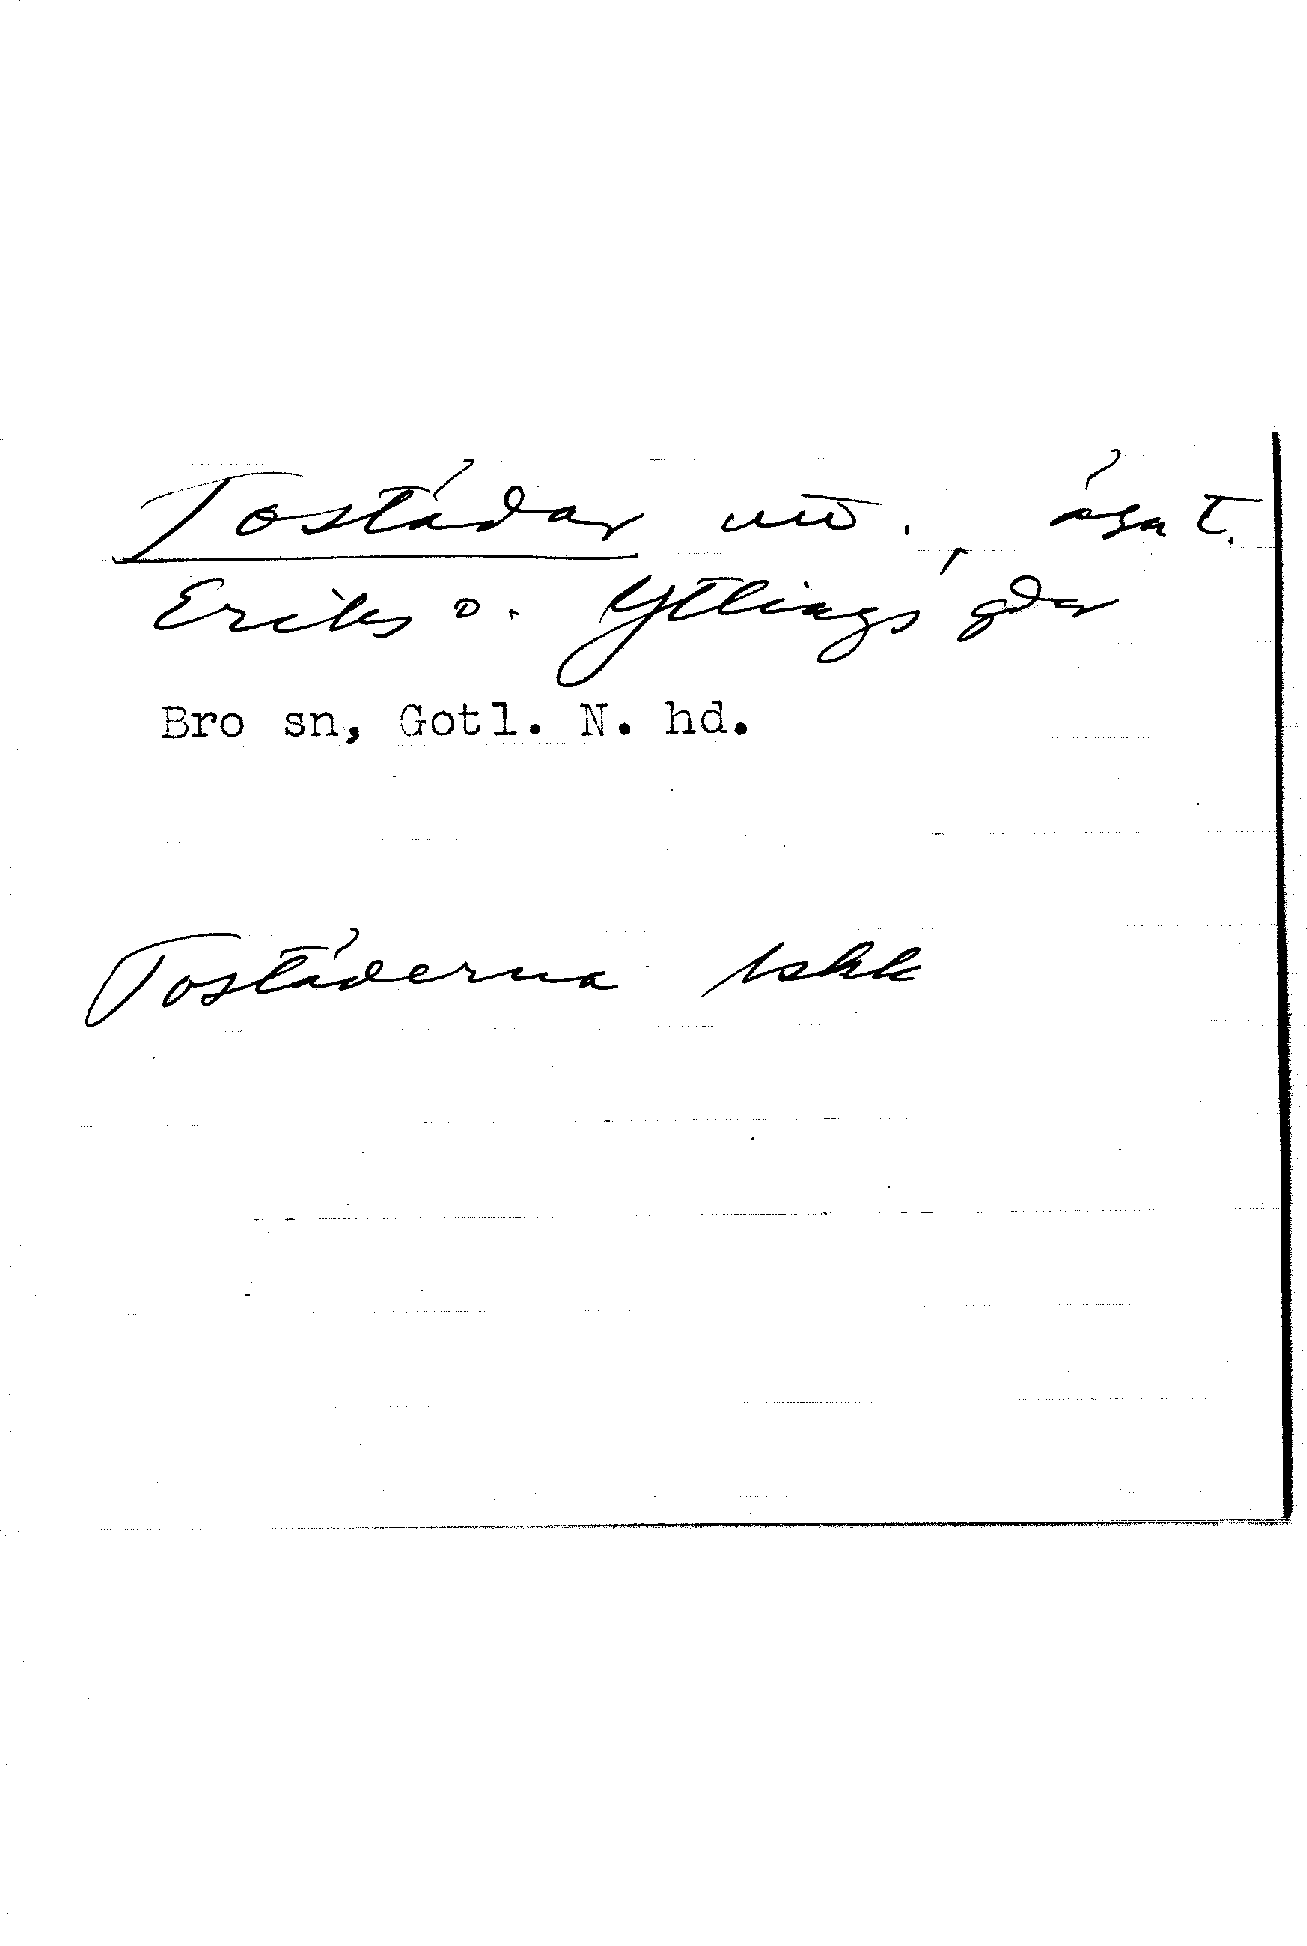 Toståðar
Eriks o. Ytlings gdr
Bro sn, Gotl. N. hd.
Toståderna